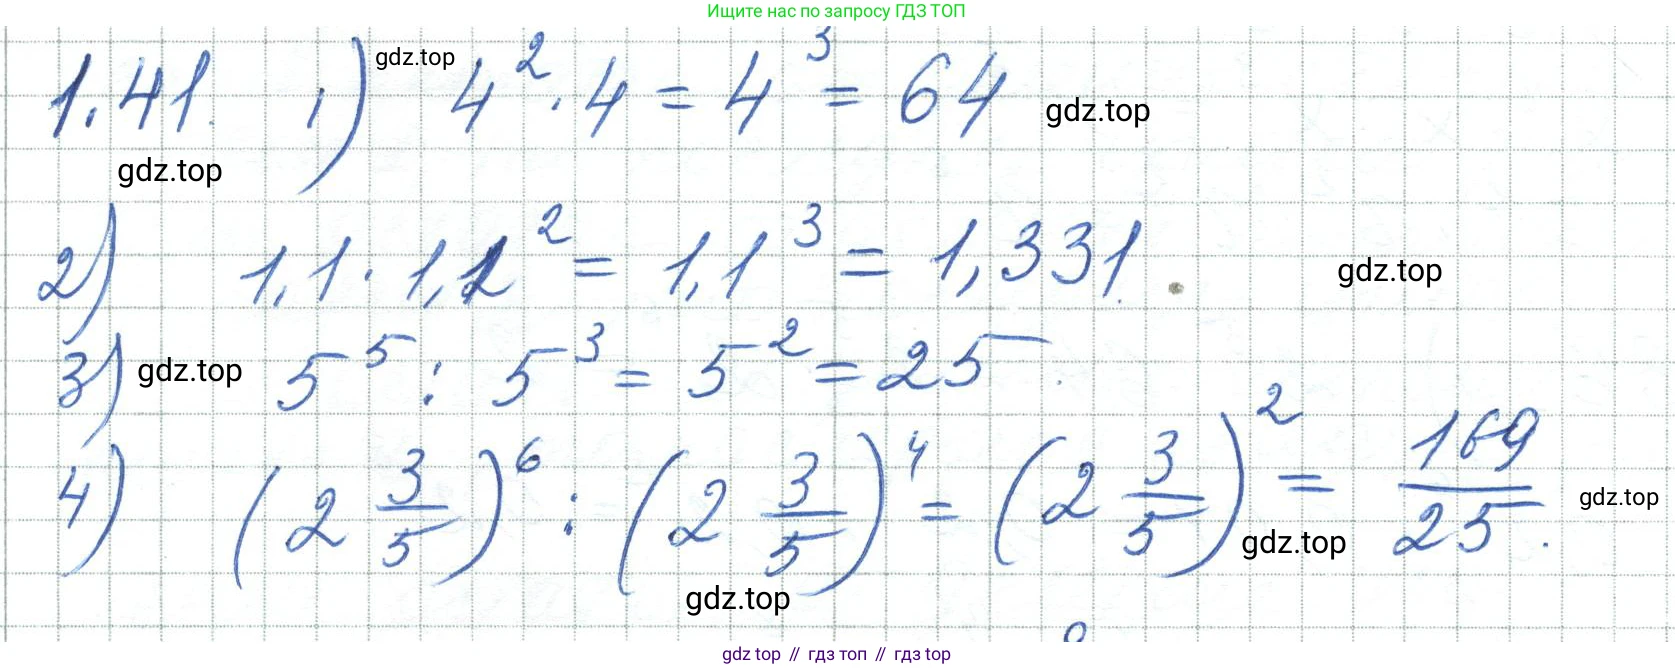 Ищите нас по запросу ГДЗ ТОП
1.41. 1) 4² · 4 = 4³ = 64
gdz.top
gdz.top
gdz.top
2) 1,1 · 1,1² = 1,1³ = 1,331.
gdz.top
3) 5⁵ : 5³ = 5² = 25.
gdz.top
4) (2 3/5)⁶ : (2 3/5)⁴ = (2 3/5)² = 169/25.
gdz.top
gdz.top
gdz.top
gdz top // гдз топ // гдз top